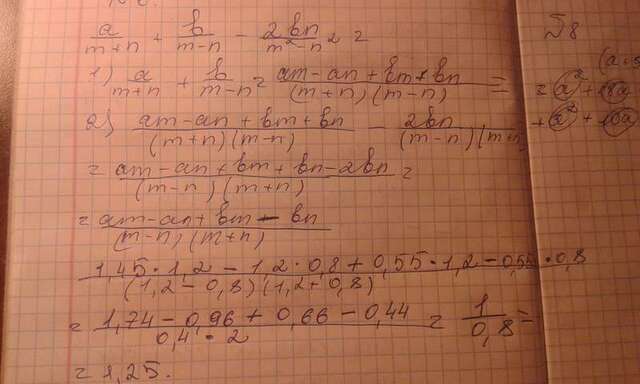 a/(m+n) + b/(m-n) - 2bn/(m²-n²) =
1) a/(m+n) + b/(m-n) = (am-an+bm+bn)/((m+n)(m-n)) =
2) (am-an+bm+bn)/((m+n)(m-n)) - 2bn/((m-n)(m+n
= (am-an+bm+bn-2bn)/((m-n)(m+n)) =
= (am-an+bm-bn)/((m-n)(m+n))
(1,45·1,2-1,2·0,8+0,55·1,2-0,55·0,8)/((1,2-0,8)(1,2+0,8))
= (1,74-0,96+0,66-0,44)/(0,4·2) = 1/0,8 =
= 1,25.
√8